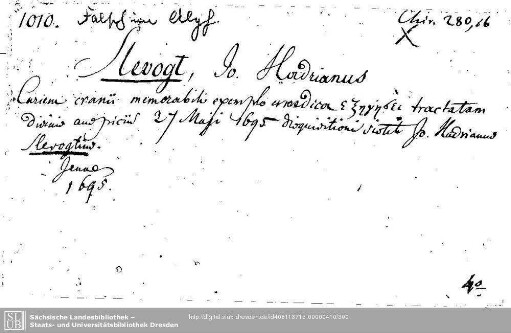 1010.
Chir. 280,16
X
Slevogt, Jo. Hadrianus
Cariem cranii memorabili exemplo ἐξηγήσει tractatam
divinis auspiciis 27 Maji 1695 disquisitioni sistit Jo. Hadrianus
Slevogtius.
Jenae
1695.
4o
Sächsische Landesbibliothek –
Staats- und Universitätsbibliothek Dresden